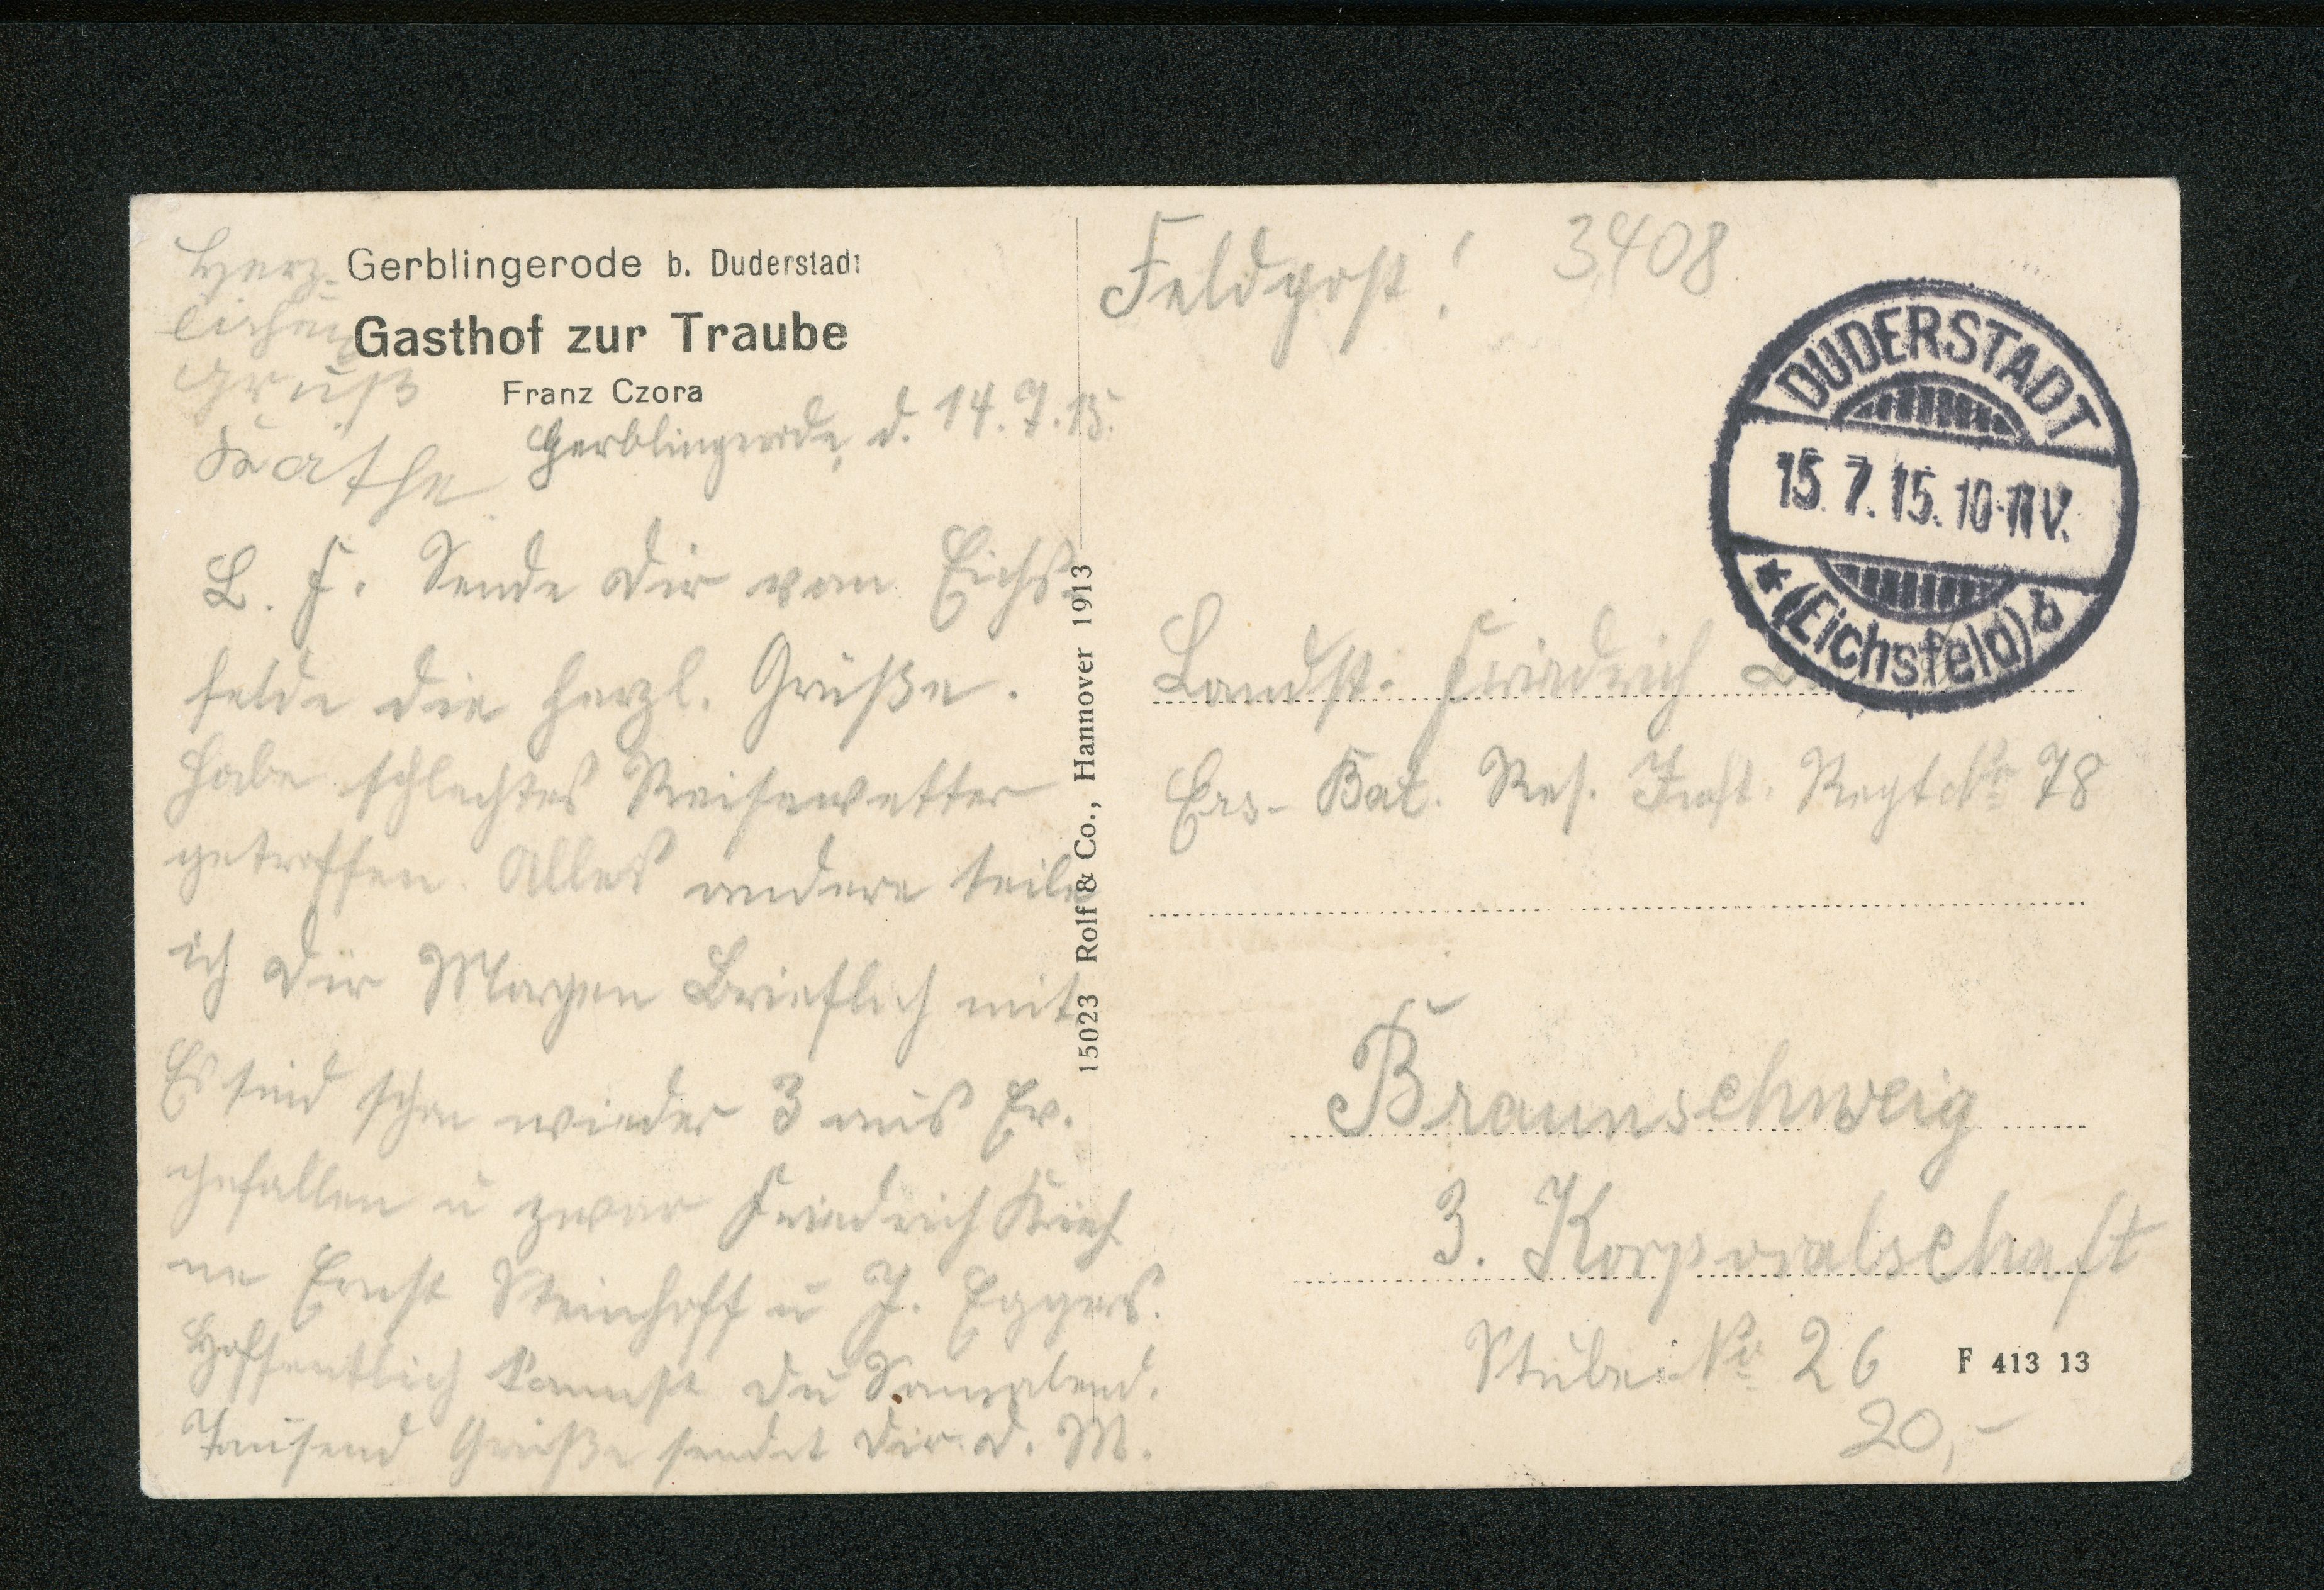 Gerblingerode b. Duderstadt
Gasthof zur Traube
Franz Czora
Herz-
lichen
Gruß
Käthe
Gerblingerode, d. 14.7.15.
L. F. Sende dir vom Eichs-
felde die herzl. Grüße.
Habe schlechtes Reisewetter
getroffen. Alles andere teile
ich dir Morgen Brieflich mit
Es sind schon wieder 3 aus Ev.
gefallen u zwar Friedrich
ne Ernst Steinhoff u J. Eggers.
Hoffentlich kommst du Sonnabend.
Tausend Grüße sendet dir d. M.
15023 Rolf & Co., Hannover 1913
Feldpost! 3408
DUDERSTADT
15.7.15.10-11V.
* (Eichsfeld) b
Landst. Friedrich
Ers-Bat. Res. Inft. Regt No 78
Braunschweig
3. Korporalschaft
Stube No 26
F 413 13
20,-